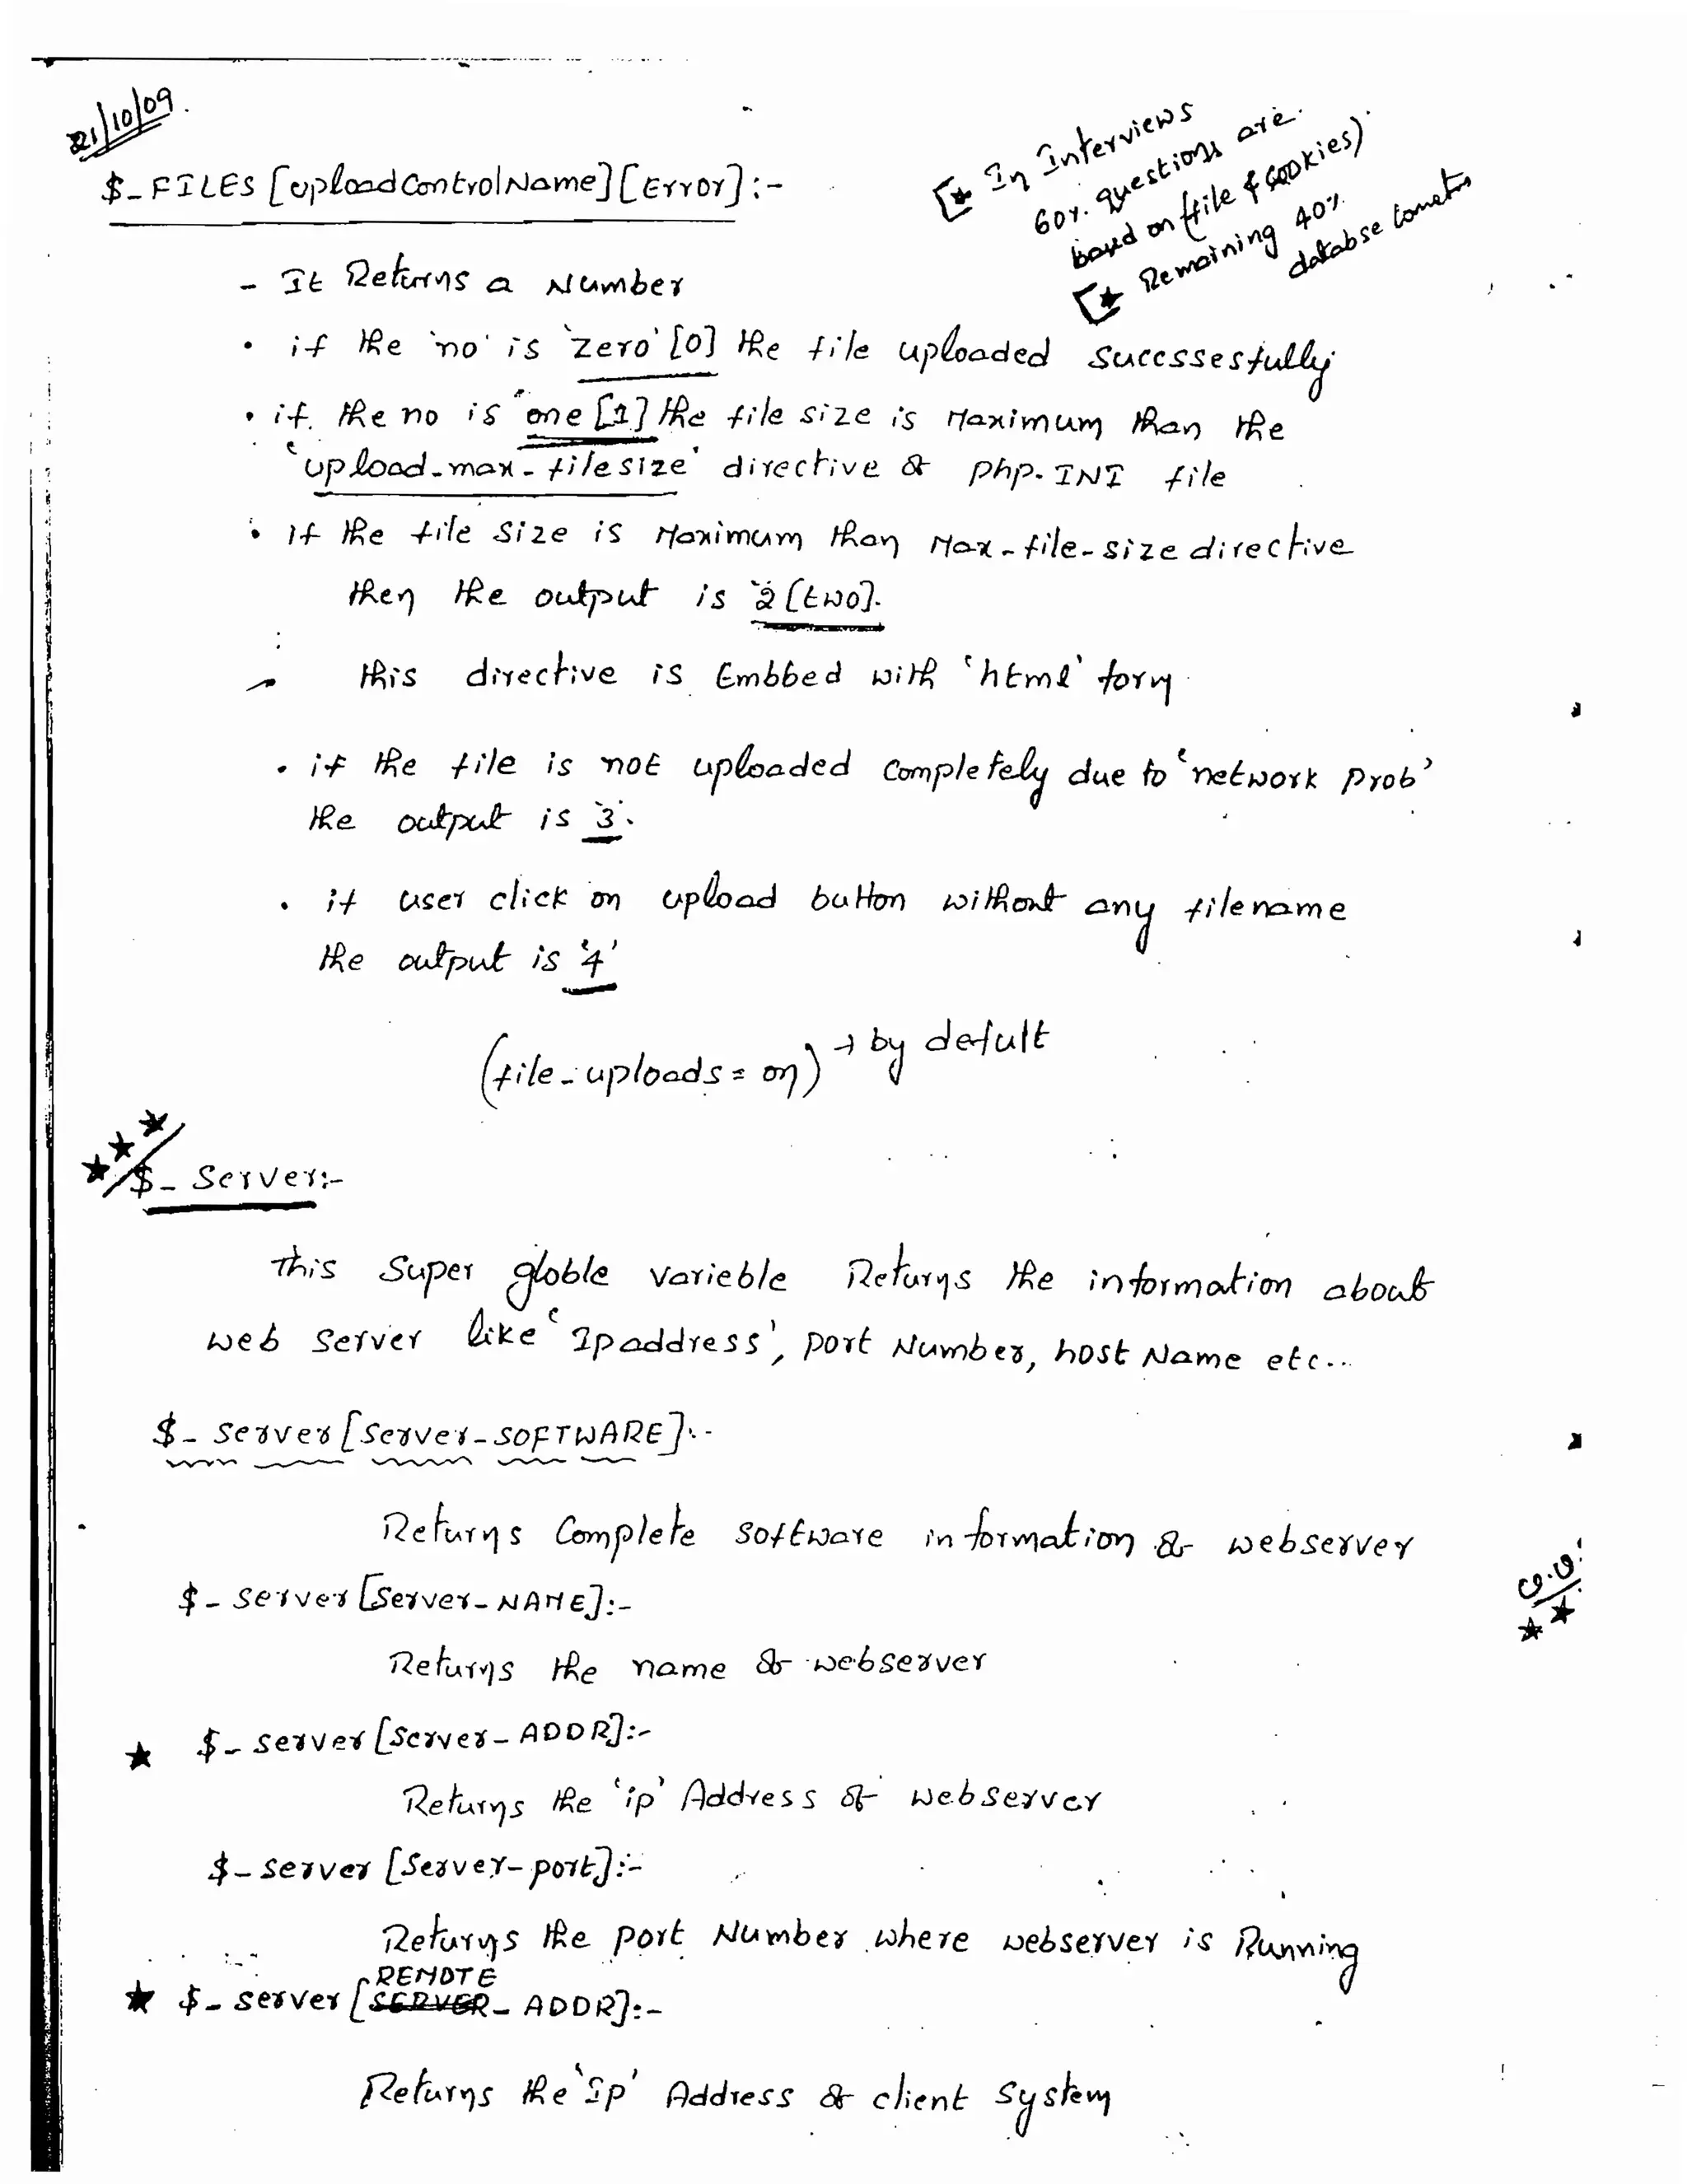 21/10/09.
[★ In Interviews
60%. questions are
based on (file & cookies)
[★ Remaining 40%.
databse
$_FILES [uploadControlName][Error]:-
- It Returns a Number
• if the 'no' is 'zero' [0] the file uploaded succssesfully
• if. the no is "one [1] the file size is Maximum than the
'upload-max-filesize' directive of php.INI file
• if the file size is Maximum than Max-file-size directive
then the output is '2 [two].
this directive is Embbed with 'html' form
• if the file is not uploaded completely due to 'network prob'
the output is '3'.
• if user click on upload button without any filename
the output is '4'
(file-uploads = on) → by defult
★★★ $_ Server:-
This Super globle varieble Returns the information about
web server like 'Ipaddress', port Number, host Name etc...
$_ server [server-SOFTWARE]:-
Returns Complete software information of webserver
$_ server [Server-NAME]:-
Returns the name of webserver
★ $_ server [Server-ADDR]:-
Returns the 'ip' Address of webserver
$_ server [Server-port]:-
Returns the port Number where webserver is Running
★ $_ server [REMOTE SERVER-ADDR]:-
Returns the 'Ip' Address of client system